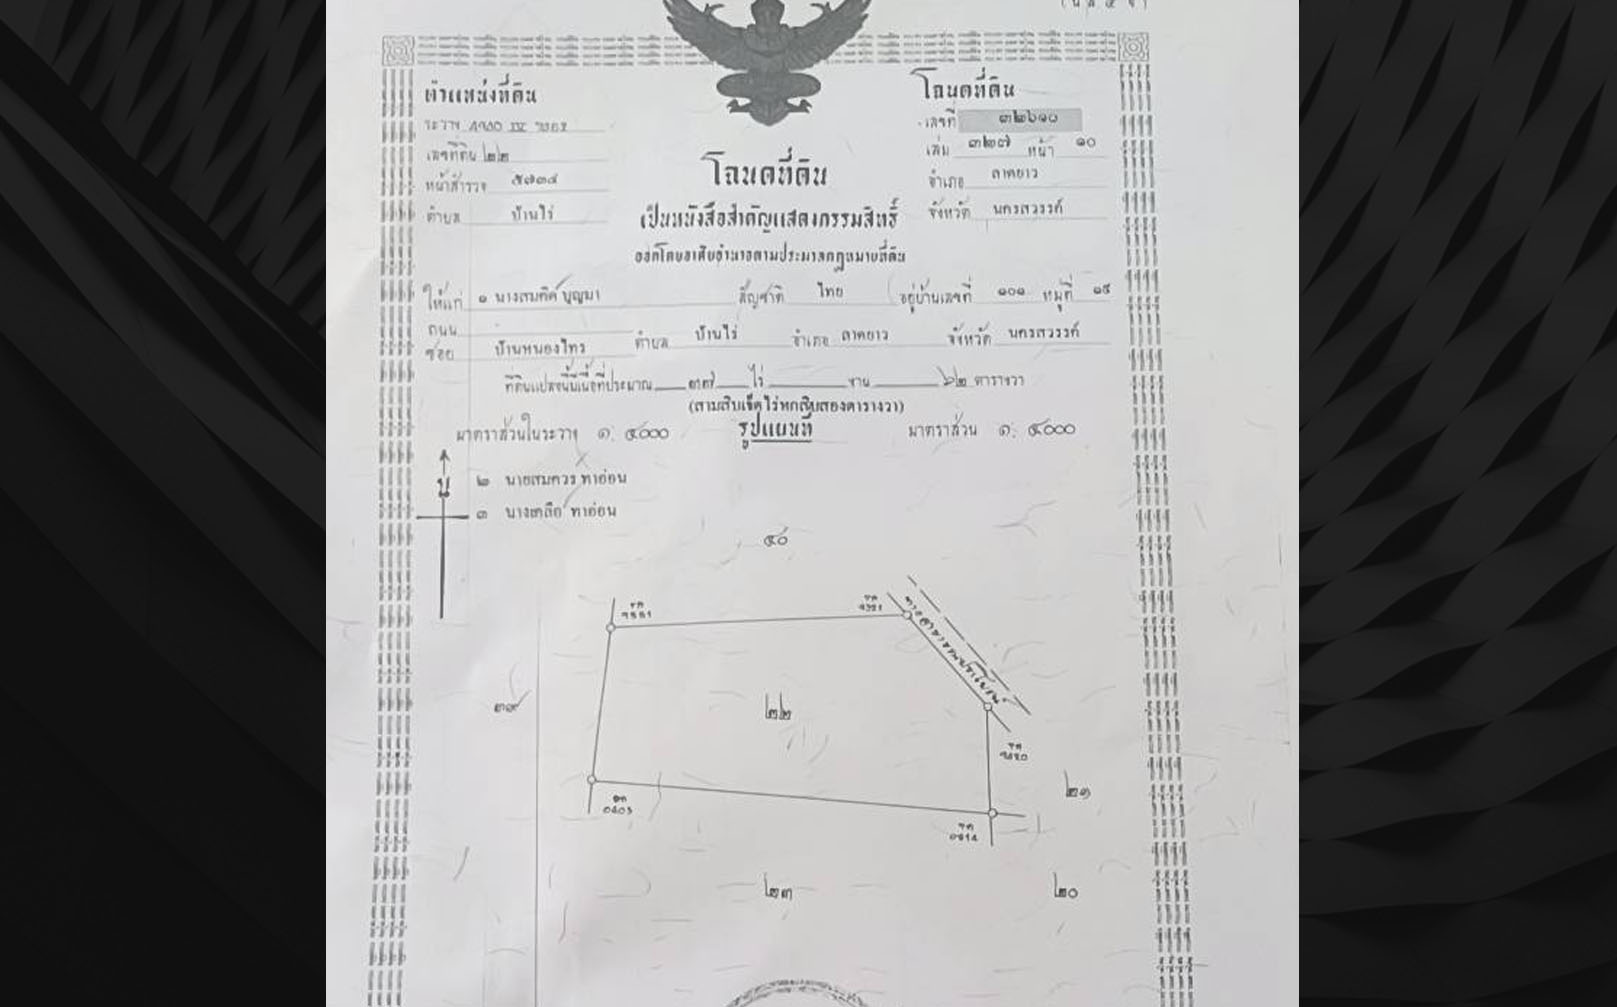 ตำแหน่งที่ดิน
ระวาง
เลขที่ดิน ๒๒
หน้าสำรวจ ๕๗๓๔
ตำบล บ้านไร่
โฉนดที่ดิน
เลขที่ ๓๒๖๑๐
เล่ม ๓๒๗ หน้า ๑๐
อำเภอ ลาดยาว
จังหวัด นครสวรรค์
โฉนดที่ดิน
เป็นหนังสือสำคัญแสดงกรรมสิทธิ์
ออกโดยอาศัยอำนาจตามประมวลกฎหมายที่ดิน
ให้แก่ ๑ นางสมคิด บุญมา สัญชาติ ไทย อยู่บ้านเลขที่ ๑๐๑ หมู่ที่ ๑๕
ถนน
ซอย บ้านหนองไทร ตำบล บ้านไร่ อำเภอ ลาดยาว จังหวัด นครสวรรค์
ที่ดินแปลงนี้มีเนื้อที่ประมาณ ๓๗ ไร่ งาน ๖๒ ตารางวา
(สามสิบเจ็ดไร่หกสิบสองตารางวา)
มาตราส่วนในระวาง ๑: ๔๐๐๐ รูปแผนที่ มาตราส่วน ๑: ๔๐๐๐
น
๒ นายสมควร ทาอ่อน
๓ นางเหลือ ทาอ่อน
๔๐
ทางสาธารณประโยชน์
๓๙
๒๒
๒๑
๒๓
๒๐